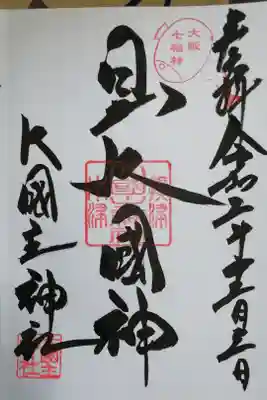 奉拝 令和二年十二月三日
大阪
七福神
日出大國神
大國主神社